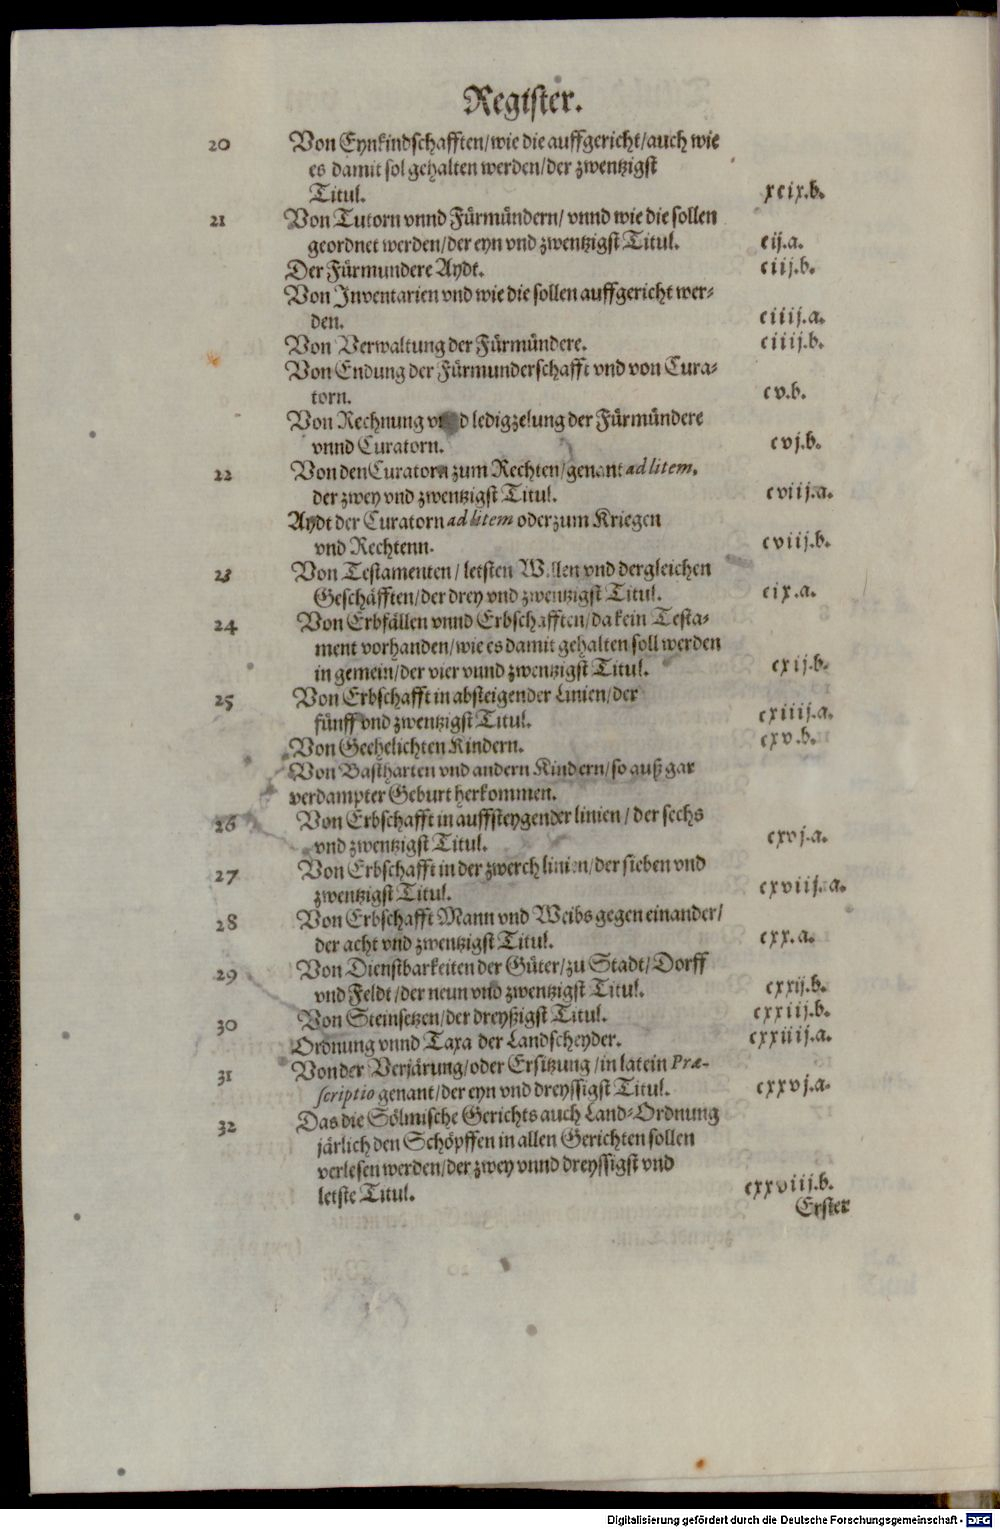 Register.
20 Von Eynkindschafften/wie die auffgericht/auch wie
es damit sol gehalten werden/der zwentzigst
Titul. xcix.b.
21 Von Tutorn vnnd Fürmündern/ vnnd wie die sollen
geordnet werden/der eyn vnd zwentzigst Titul. cij.a.
Der Fürmundere Aydt. ciij.b.
Von Inventarien vnd wie die sollen auffgericht wer-
den. ciiij.a.
Von Verwaltung der Fürmündere. ciiij.b.
Von Endung der Fürmunderschafft vnd von Cura-
torn. cv.b.
Von Rechnung vnnd ledigzelung der Fürmündere
vnnd Curatorn. cvj.b.
22 Von den Curatorn zum Rechten/genant ad litem.
der zwey vnd zwentzigst Titul. cviij.a.
Aydt der Curatorn ad litem oder zum Kriegen
vnd Rechtenn. cviij.b.
23 Von Testamenten/ letsten Willen vnd dergleichen
Geschäfften/der drey vnd zwentzigst Titul. cix.a.
24 Von Erbfällen vnnd Erbschafften/da kein Testa-
ment vorhanden/wie es damit gehalten soll werden
in gemein/der vier vnnd zwentzigst Titul. cxij.b.
25 Von Erbschafft in absteigender Linien/der
fünff vnd zwentzigst Titul. cxiiij.a.
Von Geehelichten Kindern. cxv.b.
Von Bastharten vnd andern Kindern/so auß gar
verdampter Geburt herkommen.
26 Von Erbschafft in auffsteygender linien/ der sechs
vnd zwentzigst Titul. cxvj.a.
27 Von Erbschafft in der zwerch linien/der sieben vnd
zwentzigst Titul. cxviij.a.
28 Von Erbschafft Mann vnd Weibs gegen einander/
der acht vnd zwentzigst Titul. cxx.a.
29 Von Dienstbarkeiten der Güter/zu Stadt/Dorff
vnd Feldt/der neun vnd zwentzigst Titul. cxxij.b.
30 Von Steinsetzen/der dreyßigst Titul. cxxiij.b.
Ordnung vnnd Taxa der Landscheyder. cxxiiij.a.
31 Von der Verjärung/oder Ersitzung/in latein Præ-
scriptio genant/der eyn vnd dreyssigst Titul. cxxvj.a.
32 Das die Sölmische Gerichts auch Land-Ordnung
järlich den Schöpffen in allen Gerichten sollen
verlesen werden/der zwey vnnd dreyssigst vnd
letste Titul. cxxviij.b.
Erster
Digitalisierung gefördert durch die Deutsche Forschungsgemeinschaft - DFG